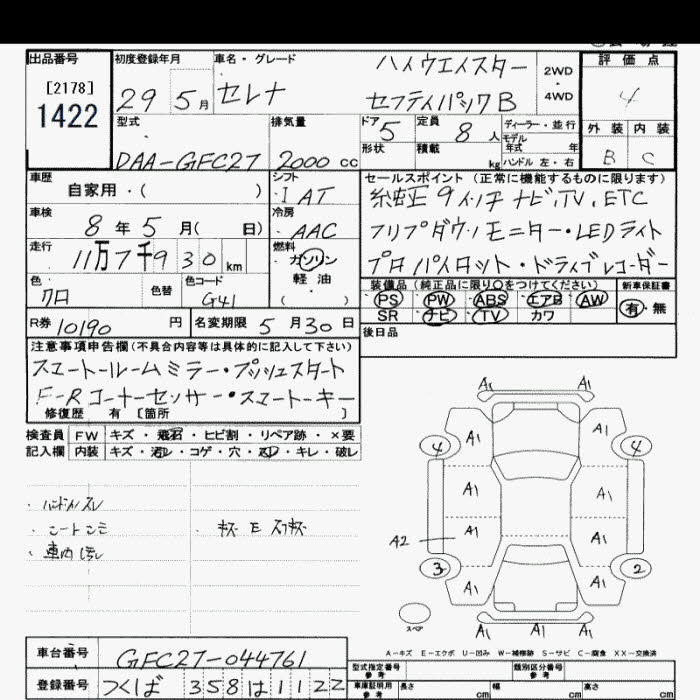 出品番号
[2178]
1422
初度登録年月
29 5月
車名・グレード
セレナ
ハイウエイスター
セーフティパックB
2WD
・
4WD
評価点
4
外装 内装
B C
型式
DAA-GFC27
排気量
2000 cc
ドア 5
形状
定員 8 人
積載 kg
ディーラー・並行
モデル年式 年
ハンドル 左・右
車歴
自家用・( )
シフト
IAT
車検
8年5月( 日)
冷房
AAC
走行
11万7千930km
燃料
ガソリン
軽油
・( )
色
クロ
色替
色コード
G41
セールスポイント(正常に機能するものに限ります)
純正9インチナビ,TV,ETC
フリップダウンモニター・LEDライト
プロパイロット・ドライブレコーダー
装備品(純正品に限り○をつけてください)
PS PW ABS エアB AW
SR ナビ TV カワ
新車保証書
有・無
R券 10190 円
名変期限 5月30日
後日品
注意事項申告欄(不具合内容等は具体的に記入して下さい)
スマートルームミラー・プッシュスタート
F-Rコーナーセンサー・スマートキー
修復歴 有 [箇所 ]
検査員記入欄
FW キズ・飛石・ヒビ割・リペア跡・×要
内装 キズ・汚レ・コゲ・穴・スレ・キレ・破レ
・ハンドルスレ
・シートシミ
・車内汚レ
・キズ E スリキズ
A1 A1
4 A1 A1 4
A1 A1
A2 A1 A1
3 A1 A1 2
A1 A1 A1
スペア
A-キズ E-エクボ U-凹み W-補修跡 S-サビ C-腐食 XX-交換済
車台番号
GFC27-044761
登録番号
つくば 358は1122
型式指定番号
参考
類別区分番号
参考
車庫証明用
参考
長さ cm
幅 cm
高さ cm